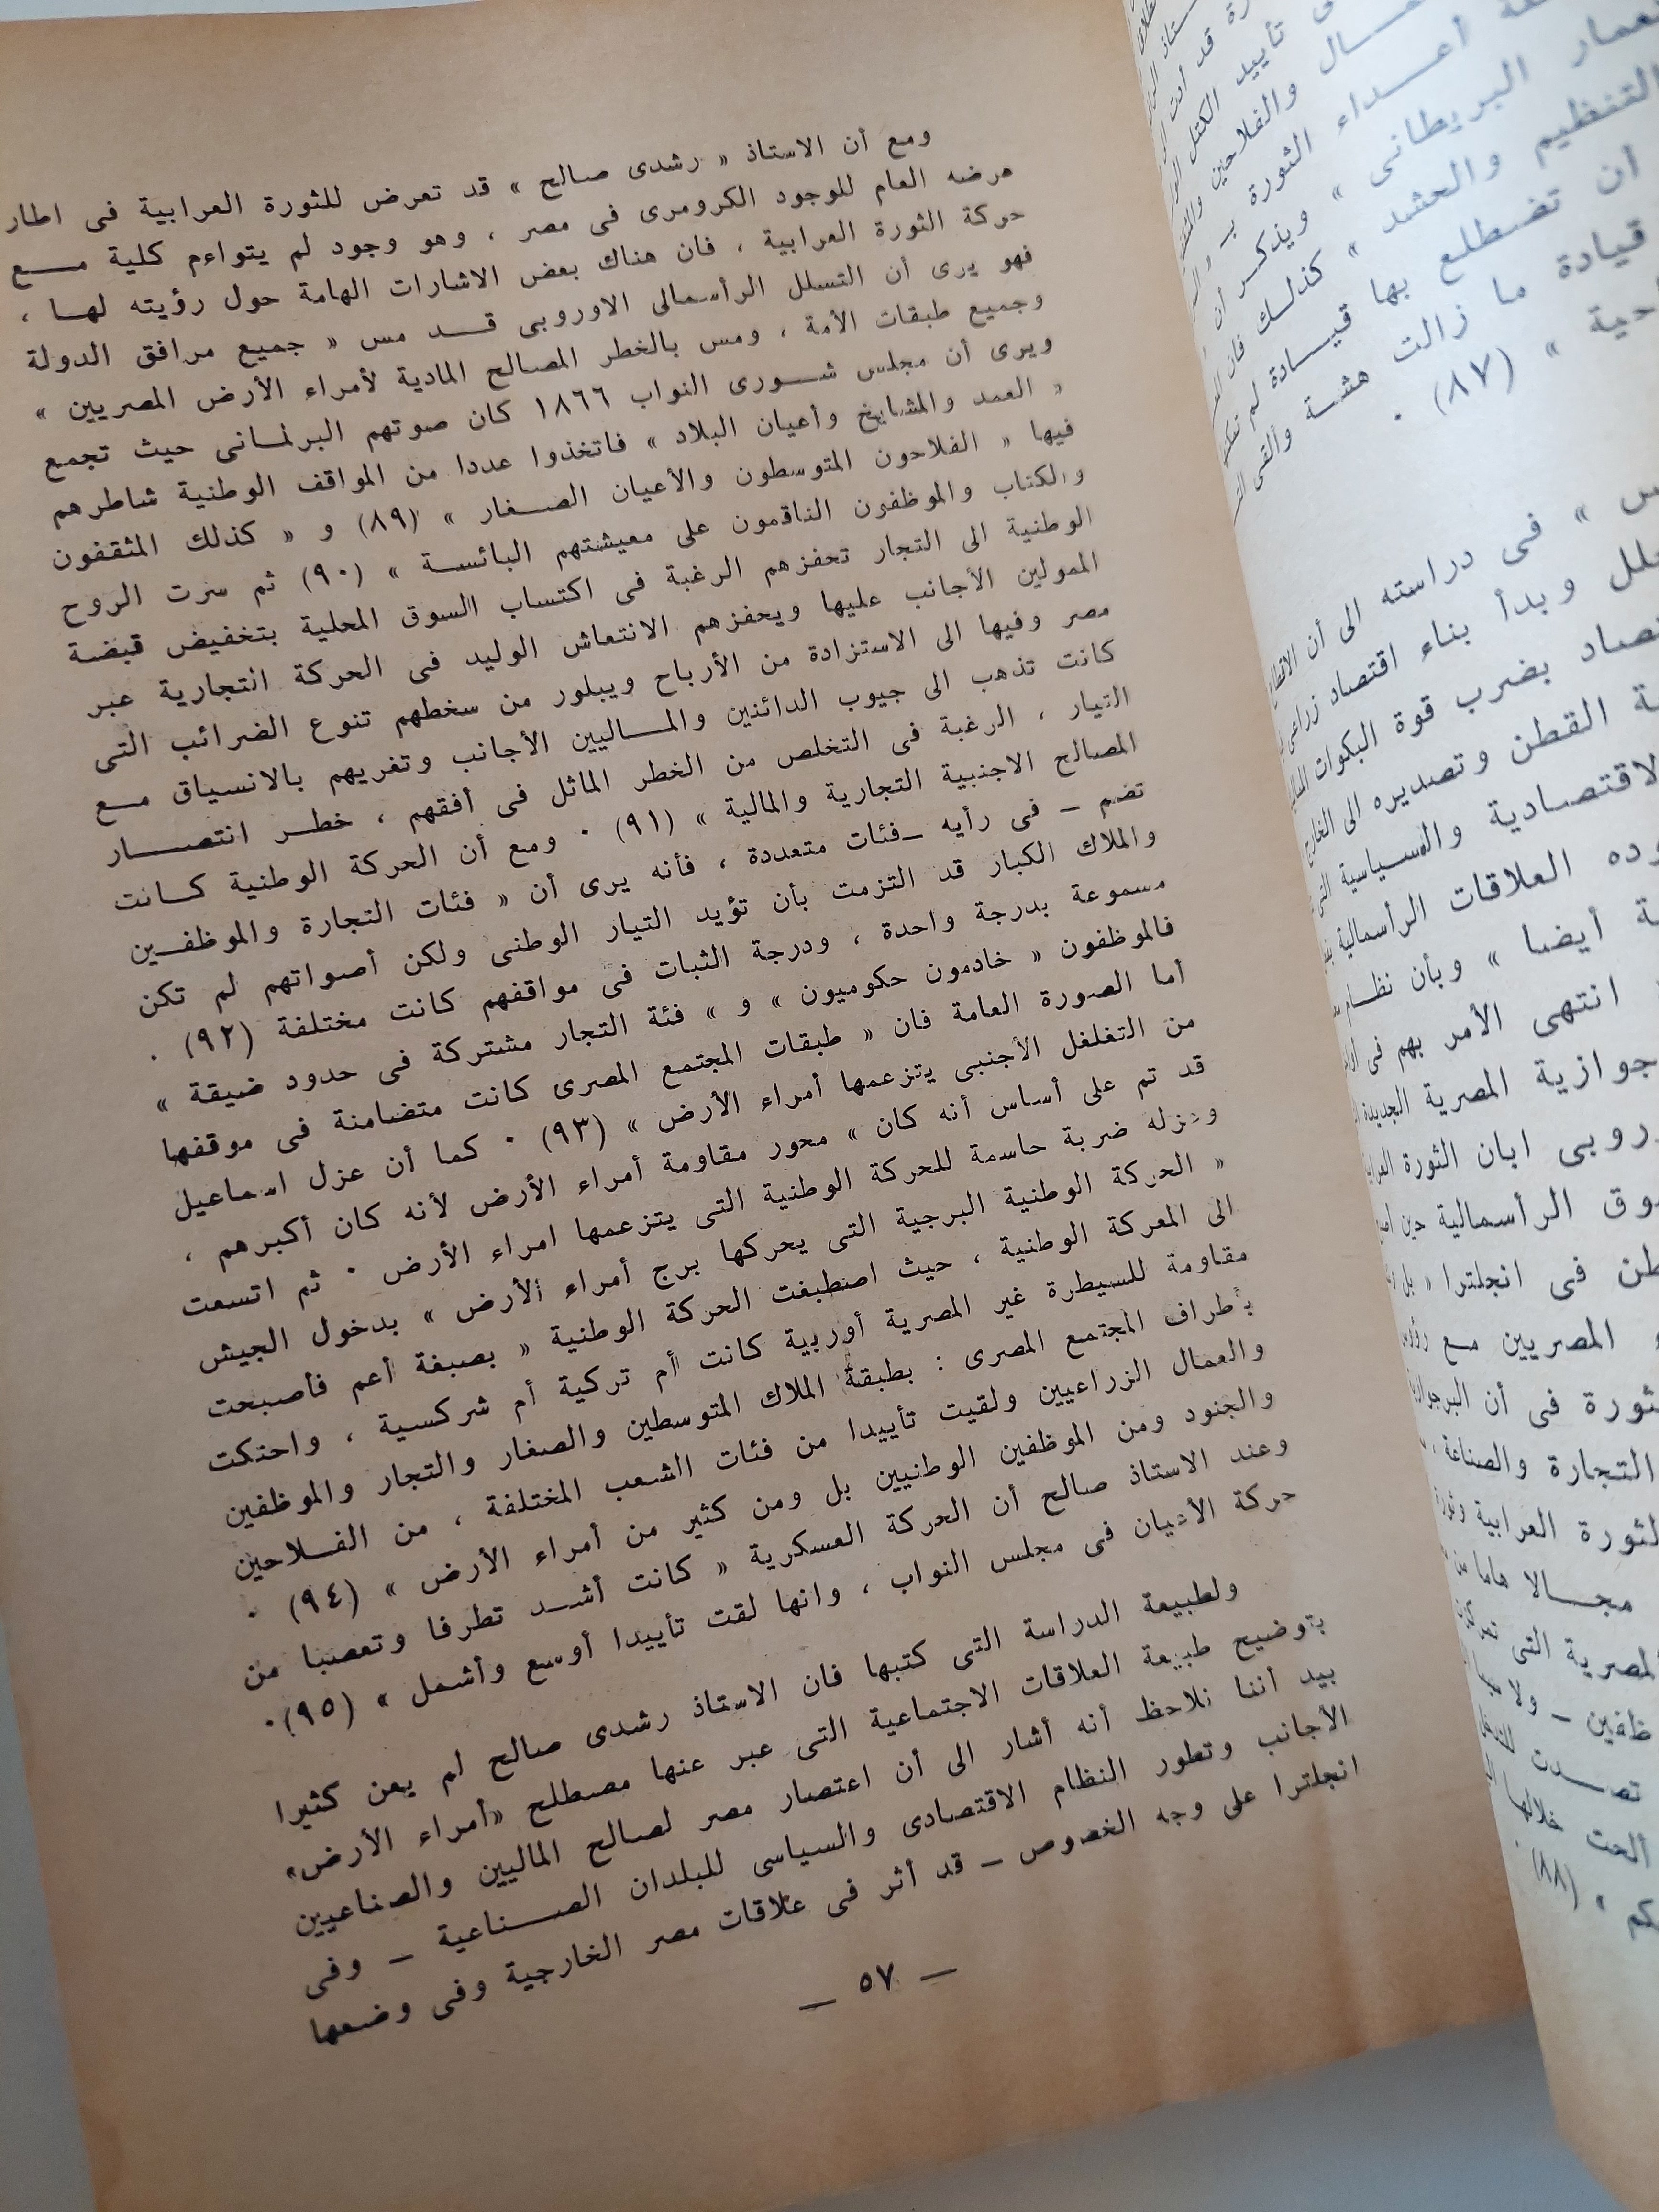 ومع أن الاستاذ « رشدى صالح » قد تعرض للثورة العرابية فى اطار
عرضه العام للوجود الكرومرى فى مصر ، وهو وجود لم يتواءم كلية مع
حركة الثورة العرابية ، فان هناك بعض الاشارات الهامة حول رؤيته لها ،
فهو يرى أن التسلل الرأسمالى الاوروبى قد مس « جميع مرافق الدولة
وجميع طبقات الأمة ، ومس بالخطر المصالح المادية لأمراء الأرض المصريين »
ويرى أن مجلس شورى النواب ١٨٦٦ كان صوتهم البرلمانى حيث تجمع
« العمد والمشايخ وأعيان البلاد » فاتخذوا عددا من المواقف الوطنية شاطرهم
فيها « الفلاحون المتوسطون والأعيان الصغار » (٨٩) و « كذلك المثقفون
والكتاب والموظفون الناقمون على معيشتهم البائسة » (٩٠) ثم سرت الروح
الوطنية الى التجار تحفزهم الرغبة فى اكتساب السوق المحلية بتخفيض قبضة
الممولين الأجانب عليها ويحفزهم الانتعاش الوليد فى الحركة انتجارية عبر
مصر وفيها الى الاستزادة من الأرباح ويبلور من سخطهم تنوع الضرائب التى
كانت تذهب الى جيوب الدائنين والماليين الأجانب وتغريهم بالانسياق مع
التيار ، الرغبة فى التخلص من الخطر الماثل فى أفقهم ، خطر انتصار
المصالح الاجنبية التجارية والمالية » (٩١) ٠ ومع أن الحركة الوطنية كانت
تضم – فى رأيه –فئات متعددة ، فأنه يرى أن « فئات التجارة والموظفين
والملاك الكبار قد التزمت بأن تؤيد التيار الوطنى ولكن أصواتهم لم تكن
مسموعة بدرجة واحدة ، ودرجة الثبات فى مواقفهم كانت مختلفة (٩٢) ٠
فالموظفون « خادمون حكوميون » و » فئة التجار مشتركة فى حدود ضيقة »
أما الصورة العامة فان « طبقات المجتمع المصرى كانت متضامنة فى موقفها
من التغلغل الأجنبى يتزعمها أمراء الأرض » (٩٣) ٠ كما أن عزل اسماعيل
قد تم على أساس أنه كان » محور مقاومة أمراء الأرض لأنه كان أكبرهم ،
وعزله ضربة حاسمة للحركة الوطنية التى يتزعمها امراء الأرض ٠ ثم اتسعت
« الحركة الوطنية البرجية التى يحركها برج أمراء الأرض » بدخول الجيش
الى المعركة الوطنية ، حيث اصطبغت الحركة الوطنية « بصبغة أعم فأصبحت
مقاومة للسيطرة غير المصرية أوربية كانت أم تركية أم شركسية ، واحتكت
بأطراف المجتمع المصرى : بطبقة الملاك المتوسطين والصغار والتجار والموظفين
والعمال الزراعيين ولقيت تأييدا من فئات الشعب المختلفة ، من الفلاحين
والجنود ومن الموظفين الوطنيين بل ومن كثير من أمراء الأرض » (٩٤) ٠
وعند الاستاذ صالح أن الحركة العسكرية « كانت أشد تطرفا وتعصبا من
حركة الأعيان فى مجلس النواب ، وانها لقت تأييدا أوسع وأشمل » (٩٥)٠
ولطبيعة الدراسة التى كتبها فان الاستاذ رشدى صالح لم يعن كثيرا
بتوضيح طبيعة العلاقات الاجتماعية التى عبر عنها مصطلح «أمراء الأرض»
بيد أننا نلاحظ أنه أشار الى أن اعتصار مصر لصالح الماليين والصناعيين
الأجانب وتطور النظام الاقتصادى والسياسى للبلدان الصناعية – وفى
انجلترا على وجه الخصوص – قد أثر فى علاقات مصر الخارجية وفى وضعها
– ٥٧ –
تأييد الكتل
والفلاحين
أعداء الثورة
البريطانى » ويذكر أن
التنظيم والحشد » كذلك فان
أن تضطلع بها قيادة لم
قيادة ما زالت هشة وألقى
» (٨٧) ٠
» فى دراسته الى أن
وبدأ بناء اقتصاد زراعى
بضرب قوة البكوات
القطن وتصديره الى الخارج
والسياسية التى
العلاقات الرأسمالية
أيضا » وبأن نظام
انتهى الأمر بهم فى
المصرية الجديدة
ابان الثورة
الرأسمالية حين
فى انجلترا « بل
المصريين مع
فى أن
التجارة والصناعة
العرابية
مجالا هاما من
التى
– ولا
تصدت
ألحت خلالها
» (٨٨) ٠